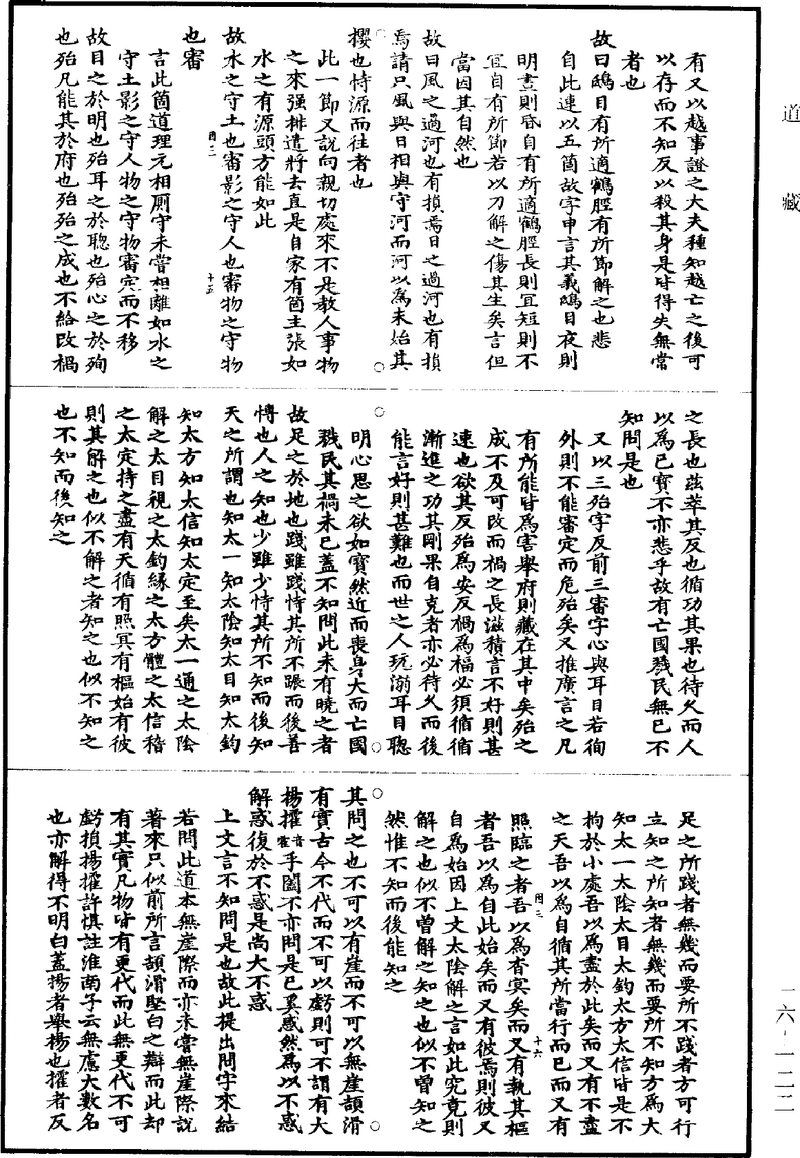 道藏
有又以越事證之大夫種知越亡之後可
以存而不知反以殺其身是皆得失無常
者也
故曰鴟目有所適鶴脛有所節解之也悲
自此連以五箇故字申言其義鴟目夜則
明晝則昏自有所適鶴脛長則宜短則不
宜自有所節若以刀解之傷其生矣言但
當因其自然也
故曰風之過河也有損焉日之過河也有損
焉請只風與日相與守河而河以為未始其
攖也恃源而往者也
此一節又說向親切處來不是教人事物
之來强排遣將去直是自家有箇主張如
水之有源頭方能如此
故水之守土也審影之守人也審物之守物
也審
言此箇道理元相厠守未嘗相離如水之
守土影之守人物之守物審定而不移
故目之於明也殆耳之於聰也殆心之於殉
也殆凡能其於府也殆殆之成也不給改禍
之長也茲萃其反也循功其果也待久而人
以為已寶不亦悲乎故有亡國戮民無已不
知問是也
又以三殆字反前三審字心與耳目若徇
外則不能審定而危殆矣又推廣言之凡
有所能皆為害舉府則藏在其中矣殆之
成不及可改而禍之長滋積言不好則甚
速也欲其反殆為安反禍為福必須循循
漸進之功其剛果自克者亦必待久而後
能言好則甚難也而世之人玩溺耳目聰
明心思之欲如寶然近而喪身大而亡國
戮民其禍未已蓋不知問此未有曉之者
故足之於地也踐雖踐恃其所不蹍而後善
博也人之知也少雖少恃其所不知而後知
天之所謂也知太一知太陰知太目知太鈞
知太方知太信知太定至矣太一通之太陰
解之太目視之太鈞緣之太方體之太信稽
之太定持之盡有天循有照冥有樞始有彼
則其解之也似不解之者知之也似不知之
也不知而後知之
足之所踐者無幾而要所不踐者方可行
立知之所知者無幾而要所不知方為大
知太一太陰太目太鈞太方太信皆是不
拘於小處吾以為盡於此矣而又有不盡
之天吾以為自循其所當行而已而又有
照臨之者吾以為杳冥矣而又有執其樞
者吾以為自此始矣而又有彼焉則彼又
自為始因上文太陰解之言如此究竟則
解之也似不曾解之知之也似不曾知之
然惟不知而後能知之
其問之也不可以有崖而不可以無崖頡滑
有實古今不代而不可以虧則可不謂有大
揚搉音霍乎闔不亦問是已奚惑然為以不惑
解惑復於不惑是尚大不惑
上文言不知問是也故此提出問字來結
若問此道本無崖際而亦未嘗無崖際說
著來只似前所言頡滑堅白之辯而此却
有其實凡物皆有更代而此無更代不可
虧損揚搉許慎註淮南子云無慮大數名
也亦解得不明白蓋揚者舉揚也搉者反
十五
十六
一六-一二二